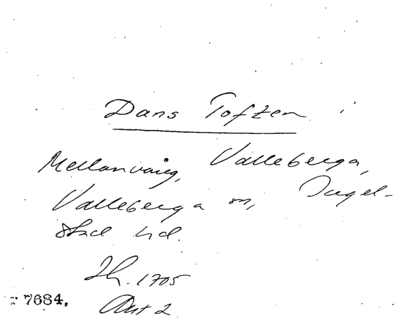 Dans Toften
Mellanvång, Valleberga,
Valleberga sn, Ingel-
stad hd.
Jb. 1705
Akt 2
7684.